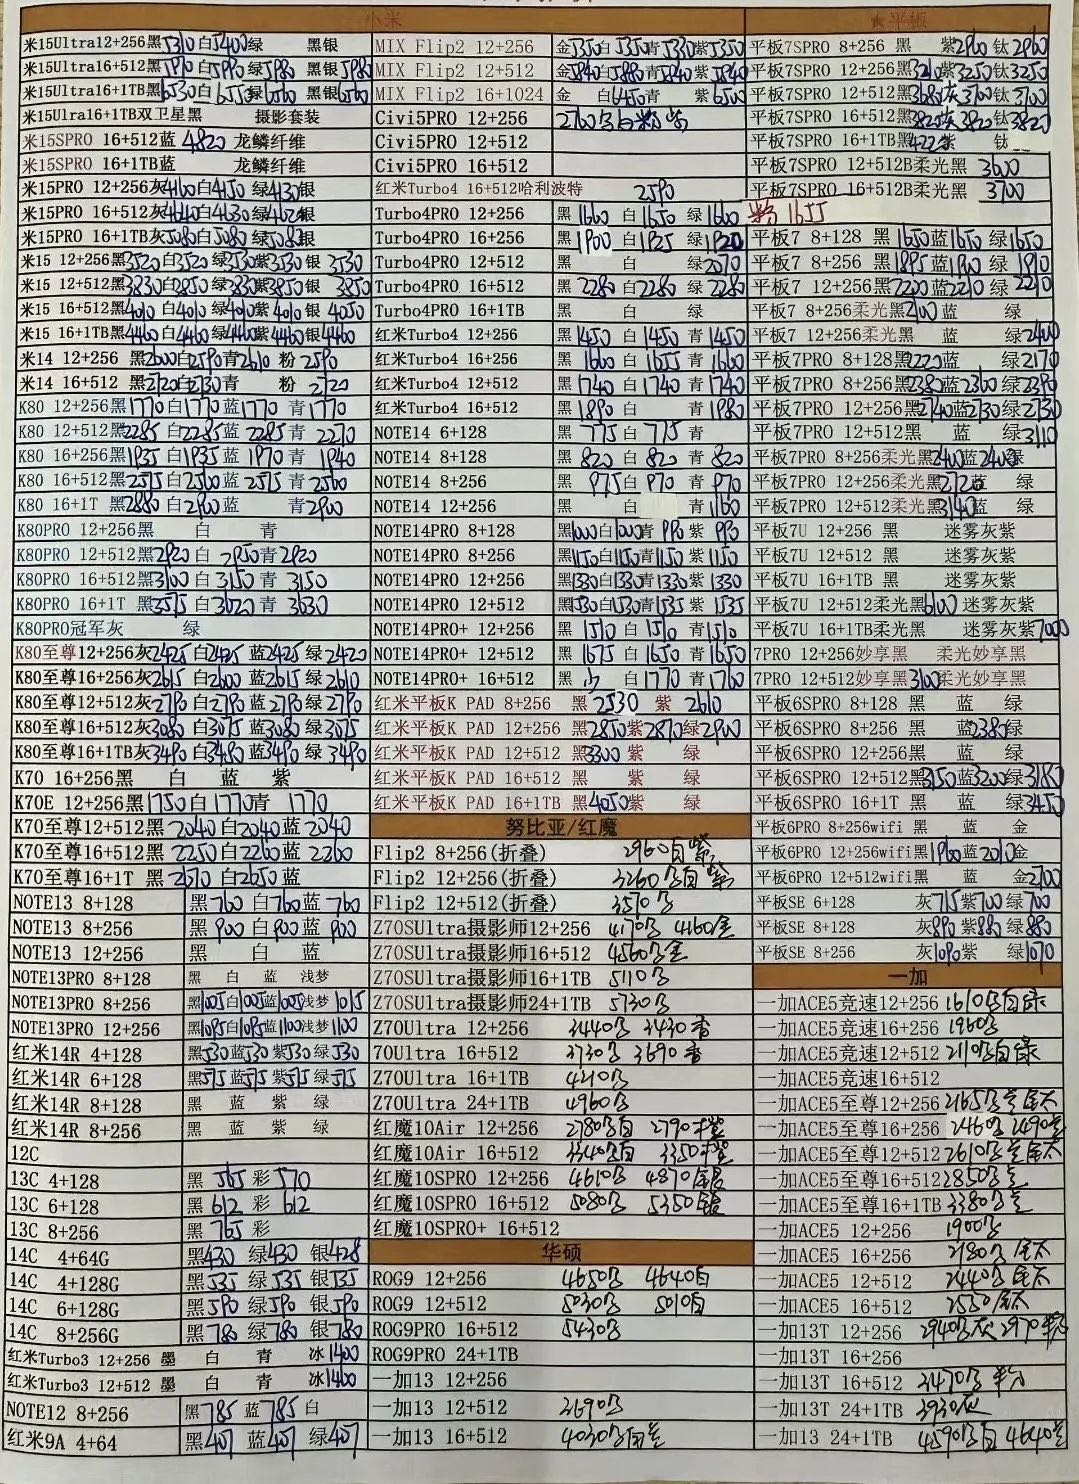 小米
★平板
米15Ultra12+256黑5310白5400绿 黑银
米15Ultra16+512黑5910白5990绿5980 黑银5980
米15Ultra16+1TB黑6530白6550绿6560 黑银6560
米15Ulra16+1TB双卫星黑 摄影套装
米15SPRO 16+512蓝 4820 龙鳞纤维
米15SPRO 16+1TB蓝 龙鳞纤维
米15PRO 12+256灰4100白4150 绿4130银
米15PRO 16+512灰4640白4630 绿4620银
米15PRO 16+1TB灰5080白5080 绿5080银
米15 12+256黑3520白3520 绿3530紫3530 银 3530
米15 12+512黑3830白3850 绿3830紫3850 银 3850
米15 16+512黑4010 白4010 绿4010紫4010 银 4050
米15 16+1TB黑4400 白4460 绿4400紫4460 银4460
米14 12+256 黑2600白2590青2610 粉 2590
米14 16+512 黑2720白2730青 粉 2720
K80 12+256黑1770白1770蓝1770 青1770
K80 12+512黑2285白2285蓝 2285青 2270
K80 16+256黑1935白1935蓝 1970青 1940
K80 16+512黑2575白2560蓝 2575青 2560
K80 16+1T 黑2880白2900蓝 青2900
K80PRO 12+256黑 白 青
K80PRO 12+512黑2920白 2950青2920
K80PRO 16+512黑3100白 3150 青 3150
K80PRO 16+1T 黑3575白3620 青 3630
K80PRO冠军灰 绿
K80至尊12+256灰2425 白2425 蓝2425 绿 2420
K80至尊16+256灰2615 白2600 蓝2615 绿 2610
K80至尊12+512灰2790 白2790 蓝2790 绿 2790
K80至尊16+512灰3080 白3075 蓝3080 绿 3075
K80至尊16+1TB灰3490 白3480 蓝3490 绿 3490
K70 16+256黑 白 蓝 紫
K70E 12+256黑1750白1770青 1770
K70至尊12+512黑 2040 白2040蓝 2040
K70至尊16+512黑 2250 白2260蓝 2300
K70至尊16+1T 黑 2670 白2650蓝
NOTE13 8+128 黑760 白760蓝 760
NOTE13 8+256 黑 900 白900蓝 900
NOTE13 12+256 黑 白 蓝
NOTE13PRO 8+128 黑 白 蓝 浅梦
NOTE13PRO 8+256 黑1005白1005蓝1005浅梦 1015
NOTE13PRO 12+256 黑1095白1095蓝1100浅梦1100
红米14R 4+128 黑530蓝530 紫530绿530
红米14R 6+128 黑575蓝575 紫575绿575
红米14R 8+128 黑 蓝 紫 绿
红米14R 8+256 黑 蓝 紫 绿
12C
13C 4+128 黑 565 彩 570
13C 6+128 黑 612 彩 612
13C 8+256 黑 765 彩
14C 4+64G 黑430 绿430 银428
14C 4+128G 黑535 绿535 银535
14C 6+128G 黑590 绿590 银590
14C 8+256G 黑780 绿780 银780
红米Turbo3 12+256 墨 白 青 冰1400
红米Turbo3 12+512 墨 白 青 冰1460
NOTE12 8+256 黑785 蓝785 白
红米9A 4+64 黑407 蓝407 绿407
MIX Flip2 12+256 金5350白5350青5330紫5350
MIX Flip2 12+512 金5940白5880青5940紫5940
MIX Flip2 16+1024 金 白6450青 紫6500
Civi5PRO 12+256 2760乌白粉紫
Civi5PRO 12+512
Civi5PRO 16+512
红米Turbo4 16+512哈利波特 2590
Turbo4PRO 12+256 黑1660 白1650 绿1660 粉1655
Turbo4PRO 16+256 黑1900 白1925 绿1920
Turbo4PRO 12+512 黑 白 绿2070
Turbo4PRO 16+512 黑2280 白2280 绿2280
Turbo4PRO 16+1TB 黑 白 绿
红米Turbo4 12+256 黑1450 白1450 青1450
红米Turbo4 16+256 黑1660 白1655 青1660
红米Turbo4 12+512 黑1740 白1740 青1740
红米Turbo4 16+512 黑1890 白 青1980
NOTE14 6+128 黑 775白 775青
NOTE14 8+128 黑 820 白 820 青 820
NOTE14 8+256 黑 975白 970 青 970
NOTE14 12+256 黑 白 青1160
NOTE14PRO 8+128 黑1000白1000青 990紫 990
NOTE14PRO 8+256 黑1150白1150青1150紫 1150
NOTE14PRO 12+256 黑1330白1330青1330紫 1330
NOTE14PRO 12+512 黑1530白1530青1535紫 1535
NOTE14PRO+ 12+256 黑 1510 白 1510 青1510
NOTE14PRO+ 12+512 黑 1675 白 1650 青1650
NOTE14PRO+ 16+512 黑 白1770 青1760
红米平板K PAD 8+256 黑 2530 紫 2610
红米平板K PAD 12+256 黑2850紫2870绿2900
红米平板K PAD 12+512 黑3300紫 绿
红米平板K PAD 16+512 黑 紫 绿
红米平板K PAD 16+1TB 黑4050紫 绿
努比亚/红魔
Flip2 8+256(折叠) 2960白紫
Flip2 12+256(折叠) 3260乌白
Flip2 12+512(折叠) 3570乌
Z70SUltra摄影师12+256 4170乌 4160金
Z70SUltra摄影师16+512 4560乌金
Z70SUltra摄影师16+1TB 5110乌
Z70SUltra摄影师24+1TB 5730乌
Z70Ultra 12+256 3440乌 3430
70Ultra 16+512 3730乌 3690
Z70Ultra 16+1TB 4210乌
Z70Ultra 24+1TB 4960乌
红魔10Air 12+256 2780乌白 2790橙
红魔10Air 16+512 3340乌白 3350橙
红魔10SPRO 12+256 4610乌 4870银
红魔10SPRO 16+512 5080乌 5350银
红魔10SPRO+ 16+512
华硕
ROG9 12+256 4650乌 4640白
ROG9 12+512 5030乌 5010白
ROG9PRO 16+512 5430乌
ROG9PRO 24+1TB
一加13 12+256
一加13 12+512 3690乌
一加13 16+512 4030乌白蓝
平板7SPRO 8+256 黑 紫2960钛2960
平板7SPRO 12+256黑3210紫3250钛3250
平板7SPRO 12+512黑3680灰3700钛3700
平板7SPRO 16+512黑3825灰3820钛3820
平板7SPRO 16+1TB黑4225紫 钛
平板7SPRO 12+512B柔光黑 3600
平板7SPRO 16+512B柔光黑 3700
平板7 8+128 黑 1650蓝1650 绿1650
平板7 8+256 黑 1895蓝1900 绿 1910
平板7 12+256黑2200蓝2210 绿 2210
平板7 8+256柔光黑2100蓝 绿
平板7 12+256柔光黑 蓝 绿2400
平板7PRO 8+128黑2220蓝 绿2170
平板7PRO 8+256黑2380蓝2360绿2390
平板7PRO 12+256黑2740蓝2730绿2730
平板7PRO 12+512黑 蓝 绿3110
平板7PRO 8+256柔光黑2400蓝2400绿
平板7PRO 12+256柔光黑2720蓝 绿
平板7PRO 12+512柔光黑3140蓝 绿
平板7U 12+256 黑 迷雾灰紫
平板7U 12+512 黑 迷雾灰紫
平板7U 16+1TB 黑 迷雾灰紫
平板7U 12+512柔光黑6100 迷雾灰紫
平板7U 16+1TB柔光黑 迷雾灰紫7000
7PRO 12+256妙享黑 柔光妙享黑
7PRO 12+512妙享黑3100柔光妙享黑
平板6SPRO 8+128 黑 蓝 绿
平板6SPRO 8+256 黑 蓝2380绿
平板6SPRO 12+256黑 蓝 绿
平板6SPRO 12+512黑3150蓝3200绿3180
平板6SPRO 16+1T 黑 蓝 绿3450
平板6PRO 8+256wifi 黑 蓝 金
平板6PRO 12+256wifi黑1960蓝 2010金
平板6PRO 12+512wifi黑 蓝 金2700
平板SE 6+128 灰715紫700 绿700
平板SE 8+128 灰890紫880 绿880
平板SE 8+256 灰1090紫 绿1070
一加
一加ACE5竞速12+256 1610乌白绿
一加ACE5竞速16+256 1960乌
一加ACE5竞速12+512 2110乌白绿
一加ACE5竞速16+512
一加ACE5至尊12+256 2165乌蓝钛
一加ACE5至尊16+256 2460乌 2490蓝
一加ACE5至尊12+512 2610乌蓝钛
一加ACE5至尊16+512 2850乌蓝
一加ACE5至尊16+1TB 3380乌蓝
一加ACE5 12+256 1900乌
一加ACE5 16+256 2180乌钛
一加ACE5 12+512 2440乌钛
一加ACE5 16+512 2550钛
一加13T 12+256 2940乌灰 2970粉
一加13T 16+256
一加13T 16+512 3470乌粉
一加13T 24+1TB 3930灰
一加13 24+1TB 4590乌白 4640蓝